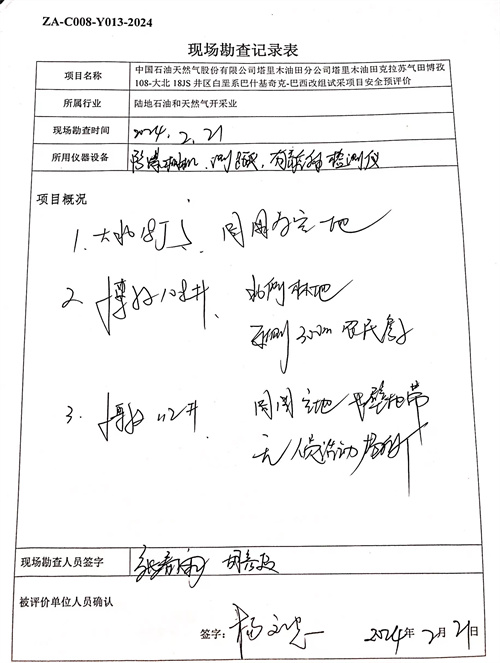 ZA-C008-Y013-2024
现场勘查记录表
项目名称
中国石油天然气股份有限公司塔里木油田分公司塔里木油田克拉苏气田博孜
108-大北 18JS 井区白垩系巴什基奇克-巴西改组试采项目安全预评价
所属行业
陆地石油和天然气开采业
现场勘查时间
2024.2.21
所用仪器设备
照相机、测距仪、有毒气体检测仪
项目概况
1. 大北18JS 周围为空地
2. 博孜108井 北侧林地
300m 农民房
3. 博孜 112井 周围空地 戈壁地带
无人员活动场所
现场勘查人员签字
被评价单位人员确认
签字:
2024年2月21日